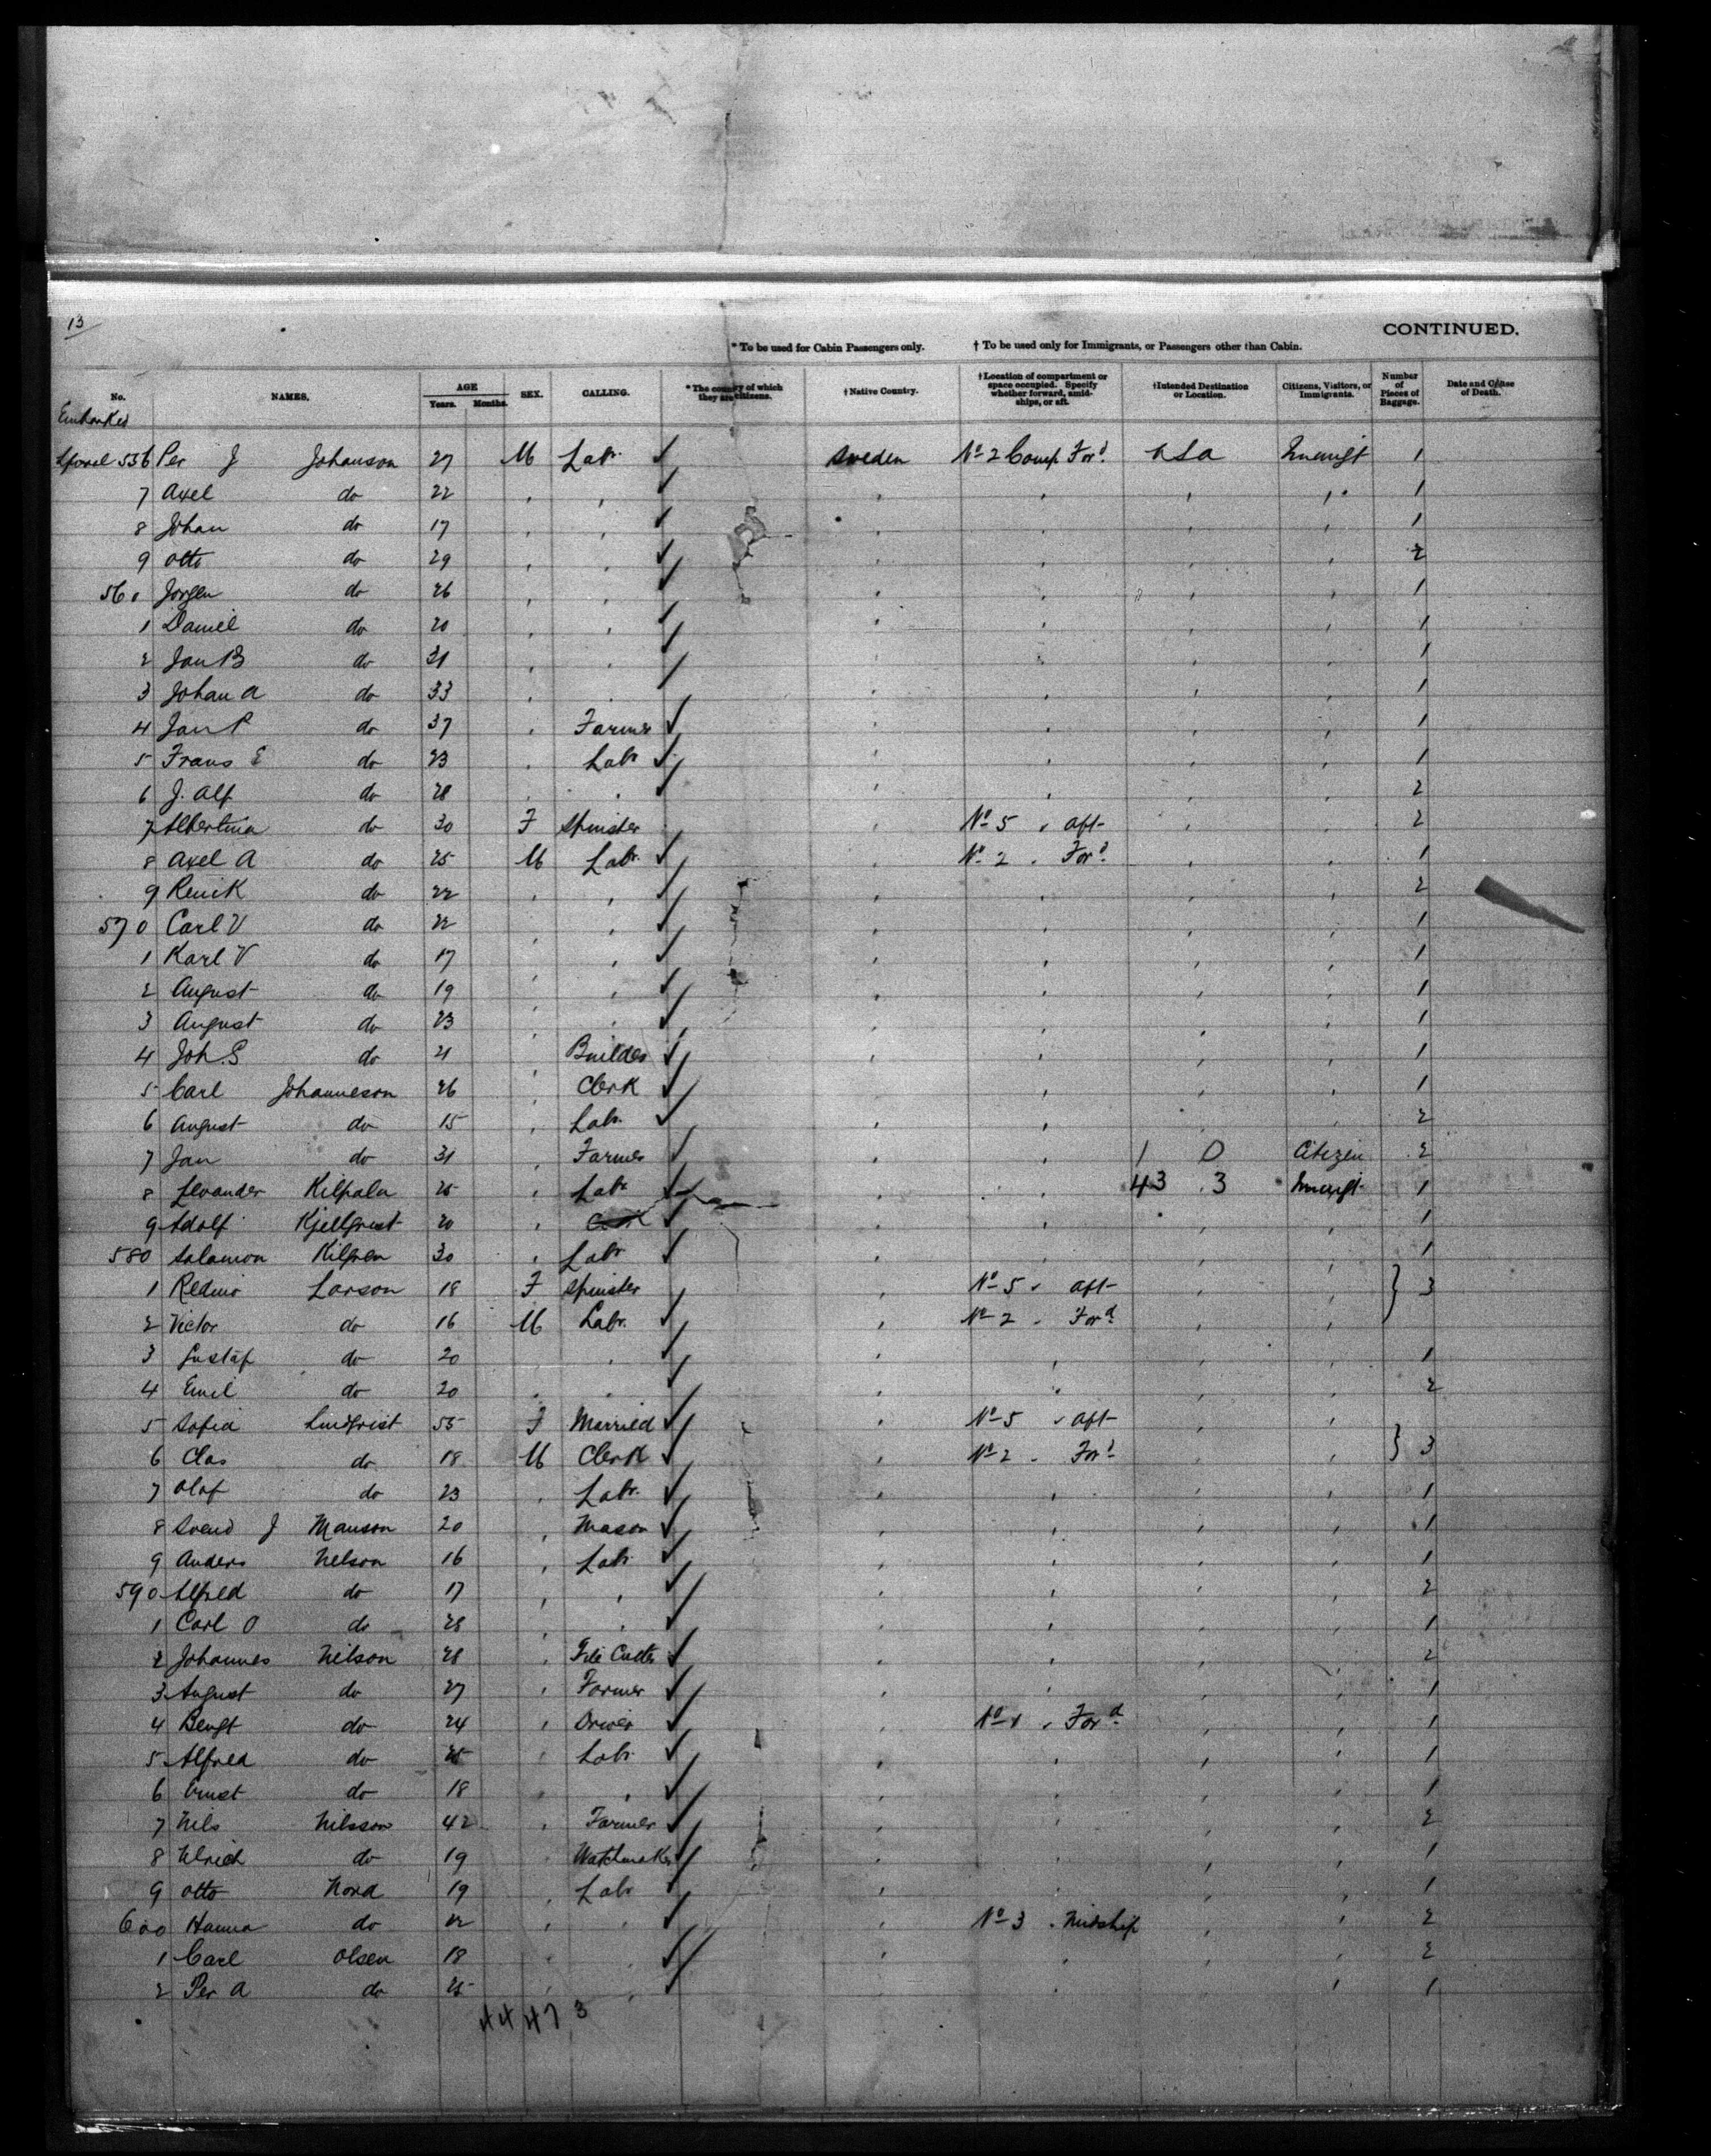 13
CONTINUED.
* To be used for Cabin Passengers only. † To be used only for Immigrants, or Passengers other than Cabin.
No. NAMES. AGE Years. Months. SEX. CALLING. * The country of which they are citizens. † Native Country. † Location of compartment or space occupied. Specify whether forward, amidships, or aft. † Intended Destination or Location. Citizens, Visitors, or Immigrants. Number of Pieces of Baggage. Date and Cause of Death.
Embarked
556 Per J Johanson 27 M Labr. Sweden No 2 Comp. Ford. USA Immigt 1
7 Axel do 22 " " " " " " 1
8 Johan do 17 " " " " " " 1
9 Otto do 29 " " " " " " 2
560 Jorgen do 26 " " " " " " 1
1 Daniel do 20 " " " " " " 1
2 Jan B do 31 " " " " " " 1
3 Johan A do 33 " " " " " " 1
4 Jan P do 37 " Farmer " " " " 1
5 Frans E do 23 " Labr " " " " 1
6 J. Alf do 28 " " " " " " 2
7 Albertina do 30 F Spinster " No 5 " Aft " " 2
8 Axel A do 25 M Labr. " No 2 " Ford " " 1
9 do 22 " " " " " " 2
570 Carl V do 22 " " " " " " 1
1 Karl V do 17 " " " " " " 1
2 August do 19 " " " " " " 1
3 August do 23 " " " " " " 1
4 Joh. S do 21 " Builder " " " " 1
5 Carl Johanneson 26 " Clerk " " " " 1
6 August do 15 " Labr. " " " " 2
7 Jan do 31 " Farmer " " 1 0 Citizen 2
8 25 " Labr " " 43 3 Immigt 1
9 Adolf Kjellqvist 20 " " " " " 1
580 Salamon Kilgren 30 " Labr " " " " 1
1 Larson 18 F Spinster " No 5 " Aft " " } 3
2 Victor do 16 M Labr. " No 2 " Ford " "
3 Gustaf do 20 " " " " " " 1
4 Emil do 20 " " " " " " 2
5 Sofia Lindqvist 55 F Married " No 5 " Aft " " } 3
6 Clas do 18 M Clerk " No 2 " Ford " "
7 Olof do 23 " Labr. " " " " 1
8 Svend J Manson 20 " Mason " " " " 1
9 Anders Nelson 16 " Labr " " " " 1
590 Alfred do 17 " " " " " " 2
1 Carl O do 28 " " " " " " 1
2 Johannes Nilson 28 " File Cutter " " " " 2
3 August do 27 " Farmer " " " " 1
4 Bengt do 24 " Driver " No 1 " Ford " " 1
5 Alfred do 25 " Labr " " " " 1
6 Ernst do 18 " " " " " " 1
7 Nils Nilsson 42 " Farmer " " " " 2
8 Ulrich do 19 " Watchmaker " " " " 1
9 Otto Nord 19 " Labr " " " " 1
600 Hanna do 22 " " " No 3 " Midship " " 2
1 Carl Olsen 18 " " " " " " 2
2 Per A do 25 " " " " " " 1
44 47 3